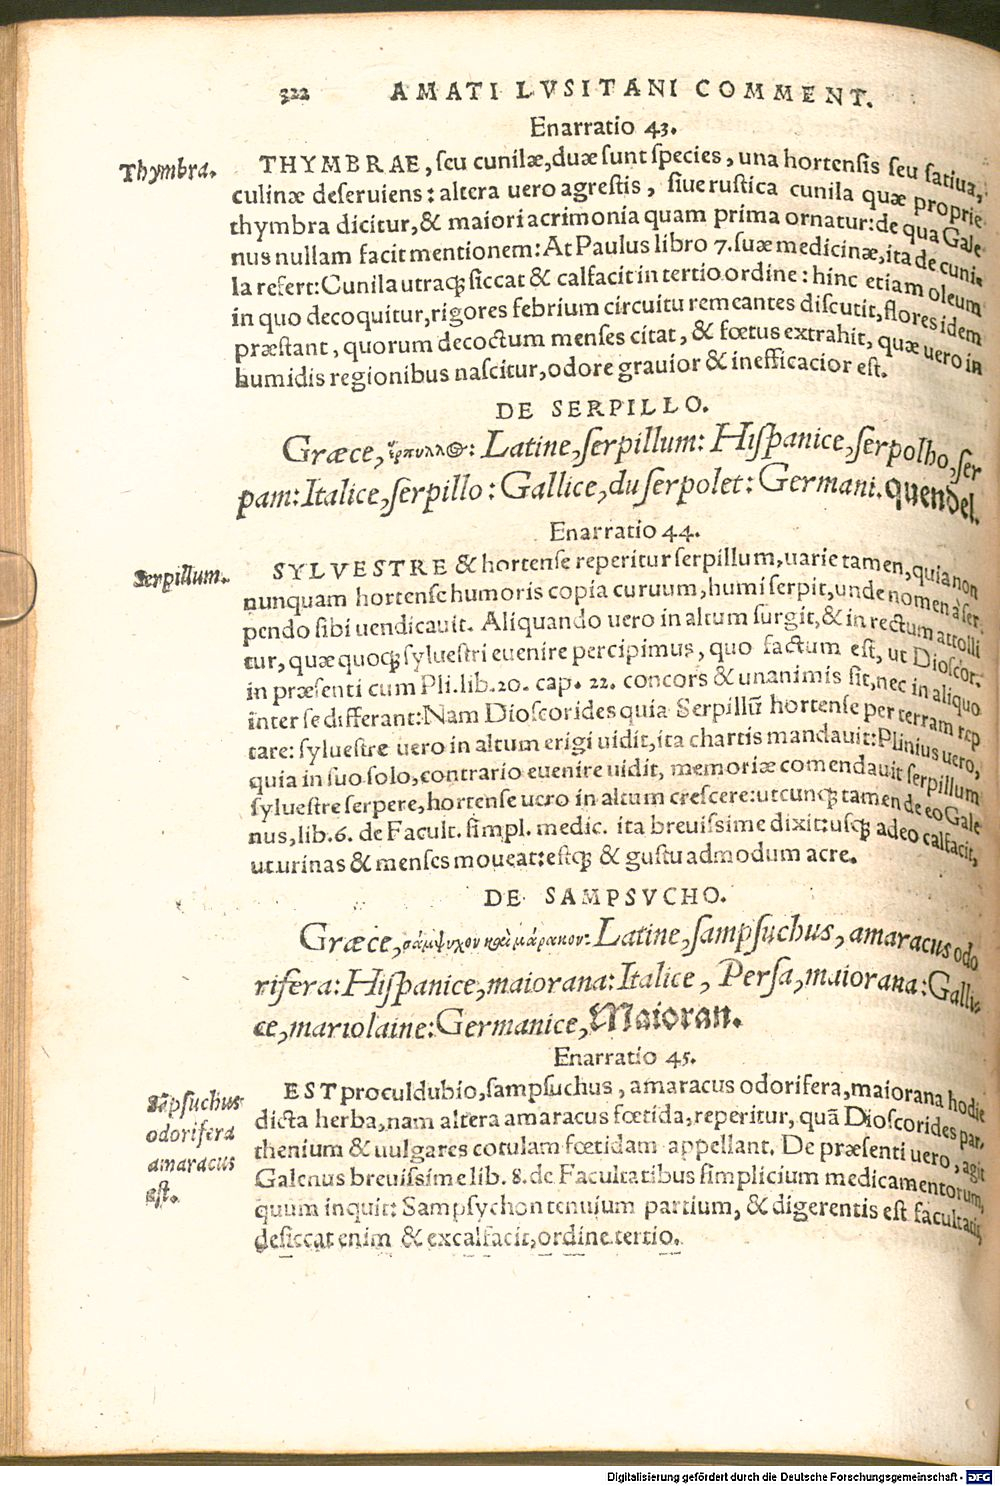 322 AMATI LVSITANI COMMENT.
Enarratio 43.
Thymbra.
THYMBRAE, seu cunilæ, duæ sunt species, una hortensis seu satiua,
culinæ deseruiens: altera uero agrestis, siue rustica cunila quæ proprie
thymbra dicitur, & maiori acrimonia quam prima ornatur: de qua Gale
nus nullam facit mentionem: At Paulus libro 7. suæ medicinæ, ita de cuni-
la refert: Cunila utraq; siccat & calfacit in tertio ordine: hinc etiam oleum
in quo decoquitur, rigores febrium circuitu remeantes discutit, flores idem
præstant, quorum decoctum menses citat, & fœtus extrahit, quæ uero in
humidis regionibus nascitur, odore grauior & inefficacior est.
DE SERPILLO.
Græce, ἕρπυλλος: Latine, serpillum: Hispanice, serpolho, ser
pam: Italice, serpillo: Gallice, du serpolet: Germani. quendel.
Enarratio 44.
Serpillum.
SYLVESTRE & hortense reperitur serpillum, uarie tamen, quia non
nunquam hortense humoris copia curuum, humi serpit, unde nomen à ser
pendo sibi uendicauit. Aliquando uero in altum surgit, & in rectum attolli
tur, quæ quoq; syluestri euenire percipimus, quo factum est, ut Dioscor.
in præsenti cum Pli. lib. 20. cap. 22. concors & unanimis sit, nec in aliquo
inter se differant: Nam Dioscorides quia Serpillū hortense per terram rep
tare: syluestre uero in altum erigi uidit, ita chartis mandauit: Plinius uero,
quia in suo solo, contrario euenire uidit, memoriæ comendauit serpillum
syluestre serpere, hortense uero in altum crescere: utcunq; tamen de eo Gale
nus, lib. 6. de Facult. simpl. medic. ita breuissime dixit: usq; adeo calfacit,
ut urinas & menses moueat: estq; & gustu admodum acre.
DE SAMPSVCHO.
Græce, σάμψυχον καὶ μάρακον: Latine, sampsuchus, amaracus odo
rifera: Hispanice, maiorana: Italice, Persa, maiorana: Galli-
ce, mariolaine: Germanice, Maioran.
Enarratio 45.
Sāpsuchus
odorifera
amaracus
est.
EST proculdubio, sampsuchus, amaracus odorifera, maiorana hodie
dicta herba, nam altera amaracus fœtida, reperitur, quā Dioscorides par-
thenium & uulgares cotulam fœtidam appellant. De præsenti uero, agit
Galenus breuissime lib. 8. de Facultatibus simplicium medicamentorum,
quum inquit: Sampsychon tenuium partium, & digerentis est facultatis,
desiccat enim & excalfacit, ordine tertio.
Digitalisierung gefördert durch die Deutsche Forschungsgemeinschaft - DFG